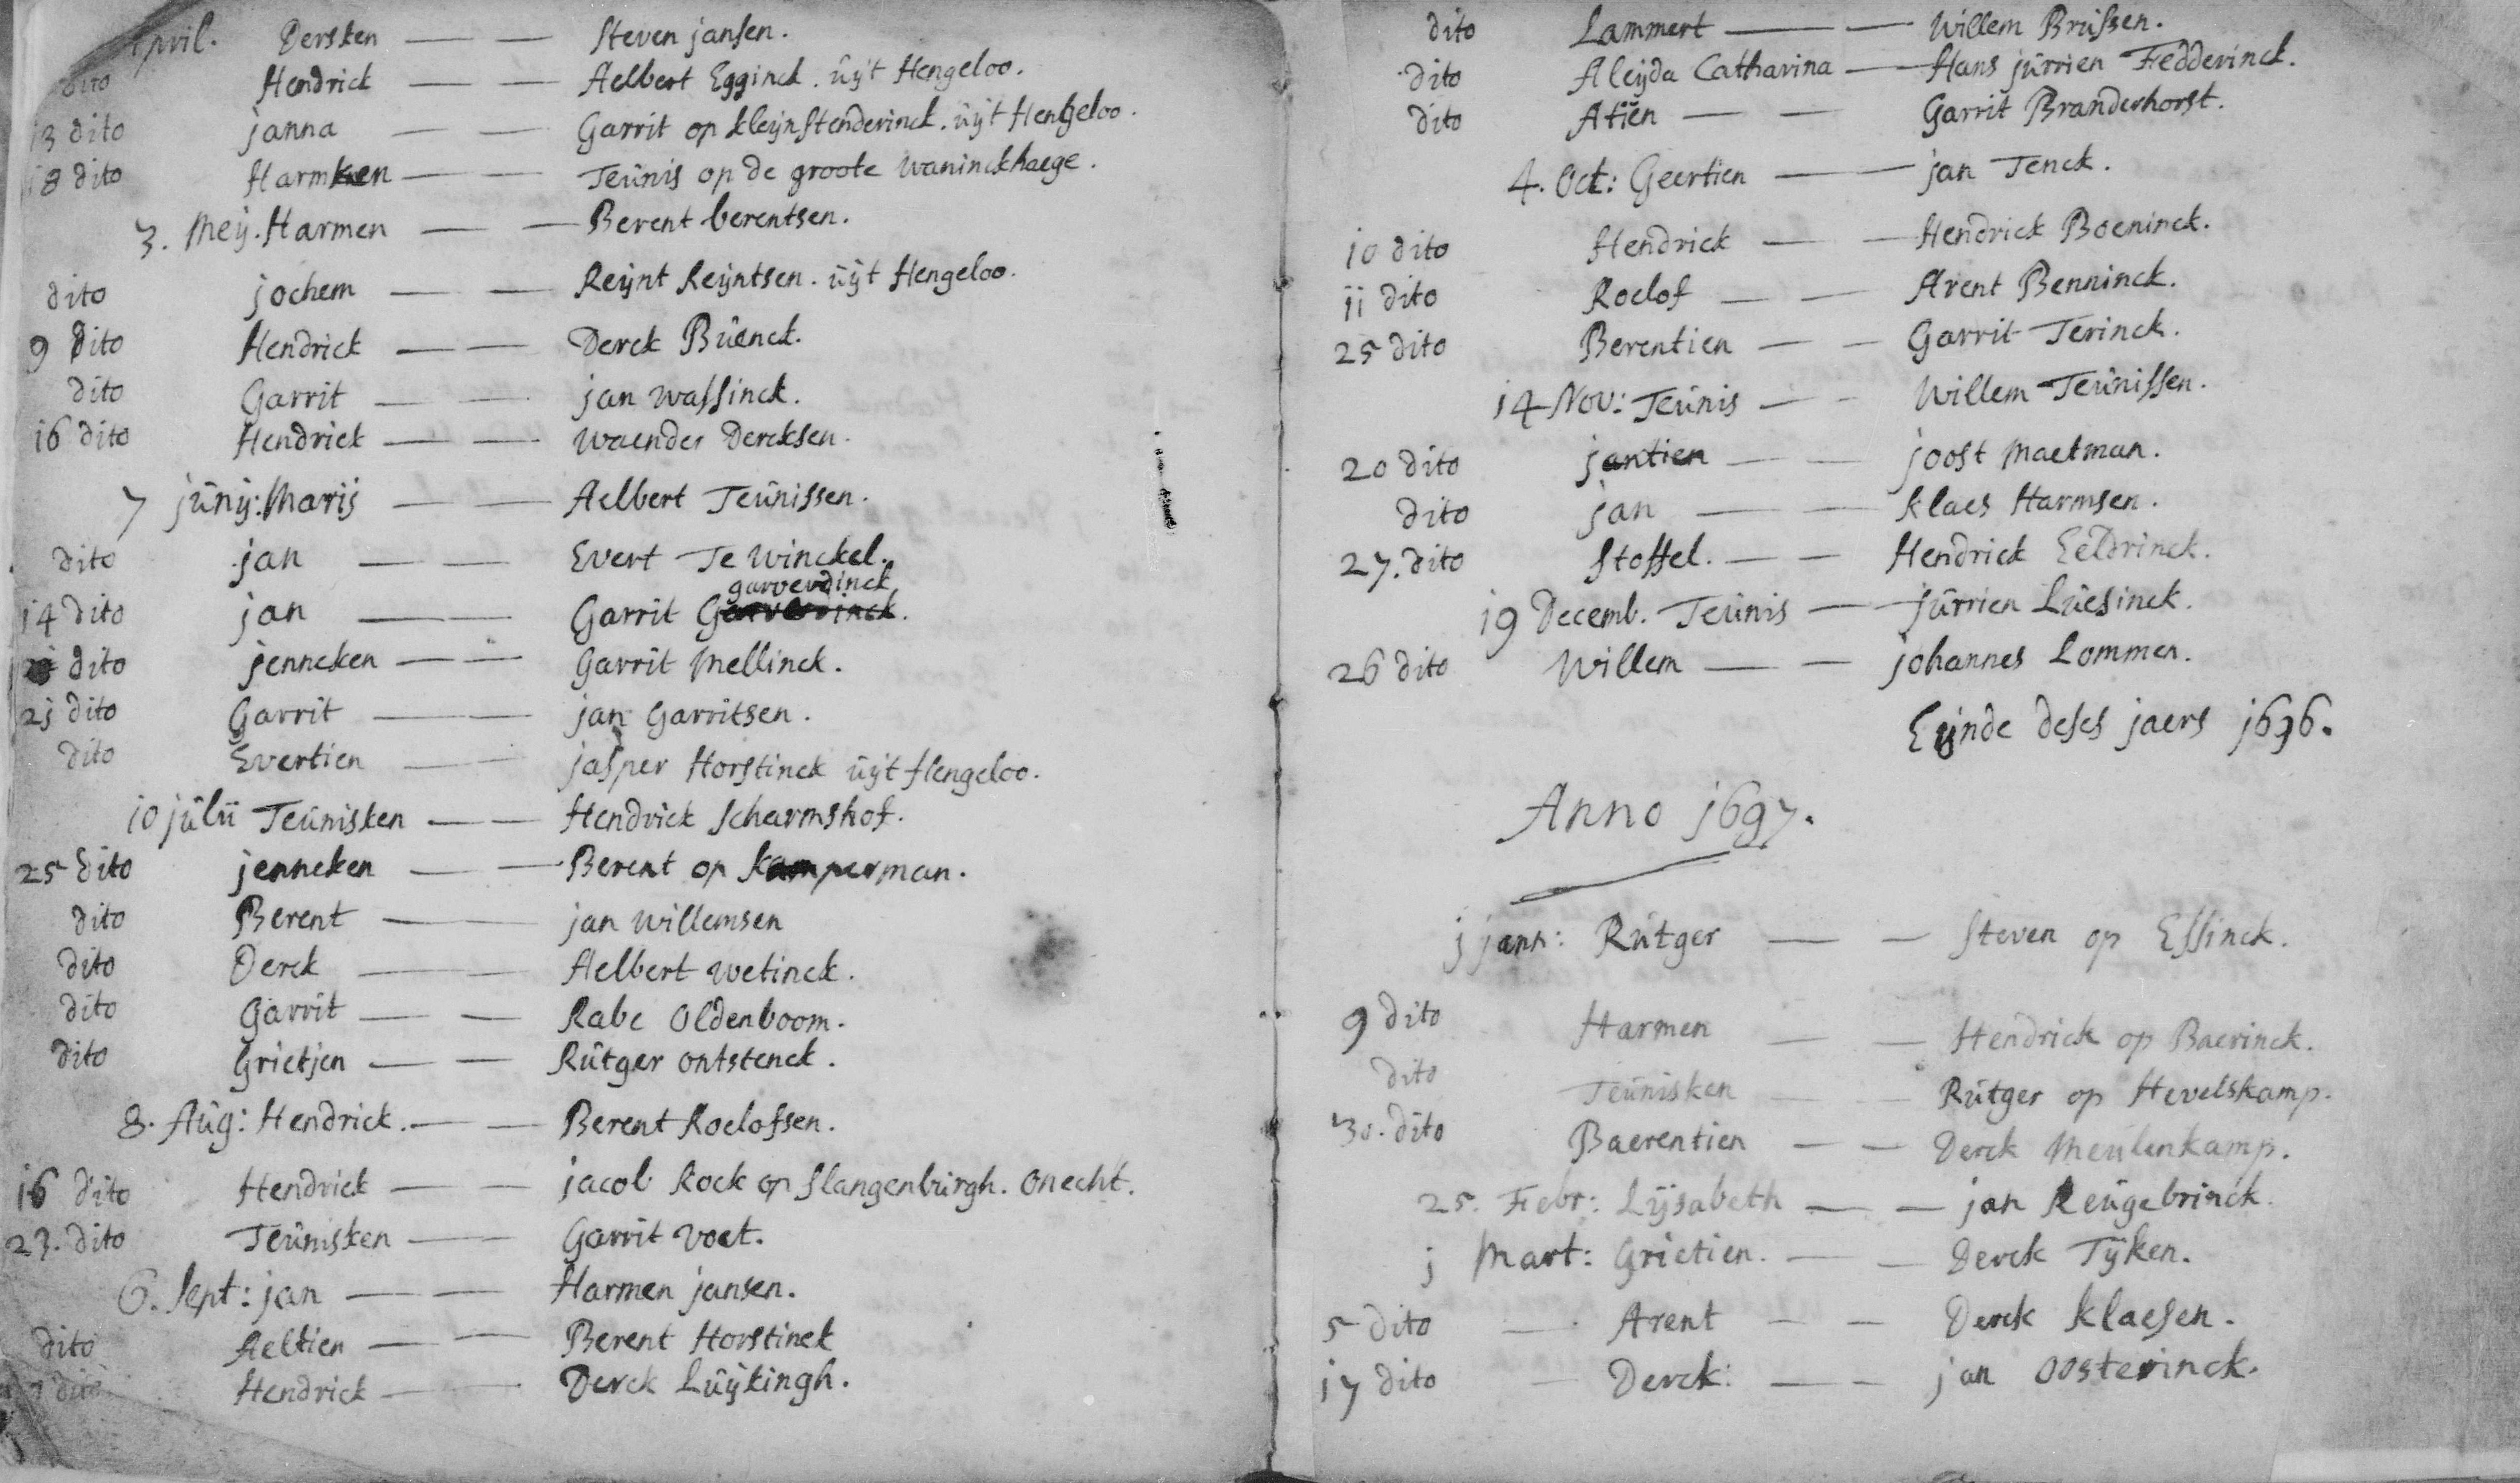 April. Dersken — — Steven jansen.
dito Hendrick — — Aelbert Egginck. uÿt Hengeloo.
13 dito janna — — Garrit op kleijn Stenderinck. uÿt Hengeloo.
18 dito Harmken — — Teunis op de groote waninckhaege.
3. Meÿ. Harmen — — Berent berentsen.
dito jochem — — Reÿnt Reÿntsen. uÿt Hengeloo.
9 dito Hendrick — — Derck Buenck.
dito Garrit — — jan wassinck.
16 dito Hendrick — — waender Dercksen.
7 junÿ: Marij — — Aelbert Teunissen.
dito jan — — Evert Te Winckel.
garverdinck
14 dito jan — — Garrit
dito jenneken — — Garrit Mellinck.
2j dito Garrit — — jan Garritsen.
dito Evertien — — jasper Horstinck uÿt Hengeloo.
10 julii Teunisken — — Hendrick Scharmshof.
25 dito jenneken — — Berent op kamperman.
dito Berent — — jan willemsen
dito Derck — — Aelbert wetinck.
dito Garrit — — Rabe Oldenboom.
dito Grietjen — — Rutger ontstenck.
8. Aug: Hendrick. — — Berent Roelofsen.
16 dito Hendrick — — jacob Kock op Slangenburgh. onecht.
23. dito Teunisken — — Garrit voet.
6. Sept: jan — — Harmen jansen.
dito Aeltien — — Berent Horstinck
dito Hendrick — — Derck Luÿkingh.
dito Lammert — — Willem Brussen.
dito Aleijda Catharina — Hans jurrien Fedderinck.
dito Atien — — Garrit Branderhorst.
4. Oct: Geertien — — jan Tenck.
10 dito Hendrick — — Hendrick Boeninck.
11 dito Roelof — — Arent Benninck.
25 dito Berentien — — Garrit Terinck.
14 Nov: Teunis — — Willem Teunissen.
20 dito jantien — — joost Maetman.
dito jan — — klaes Harmsen.
27. dito Stoffel. — — Hendrick Eeldrinck.
19 Decemb. Teunis — — jurrien Luesinck.
26 dito Willem — — johannes Lommen.
Eijnde deses jaers j696.
Anno j697.
j jann: Rutger — — Steven op Essinck.
9 dito Harmen — — Hendrick op Baerinck.
dito Teunisken — — Rutger op Hevelskamp.
30. dito Baerentien — — Derck Meulenkamp.
25. Febr: Lÿsabeth — — jan Reugebrinck.
j Mart: Grietien. — — Derck Tÿken.
5 dito — Arent — — Derck klaesen.
17 dito — Derck: — — jan oosterinck.